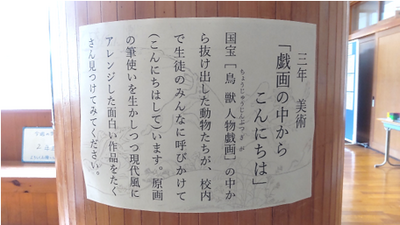 三年　美術
「戯画の中から
こんにちは」
ちょうじゅうじんぶつぎが
国宝［鳥獣人物戯画］の中か
ら抜け出した動物たちが、校内
で生徒のみんなに呼びかけて
（こんにちはして）います。原画
の筆使いを生かしつつ現代風に
アレンジした面白い作品をたく
さん見つけてみてください。